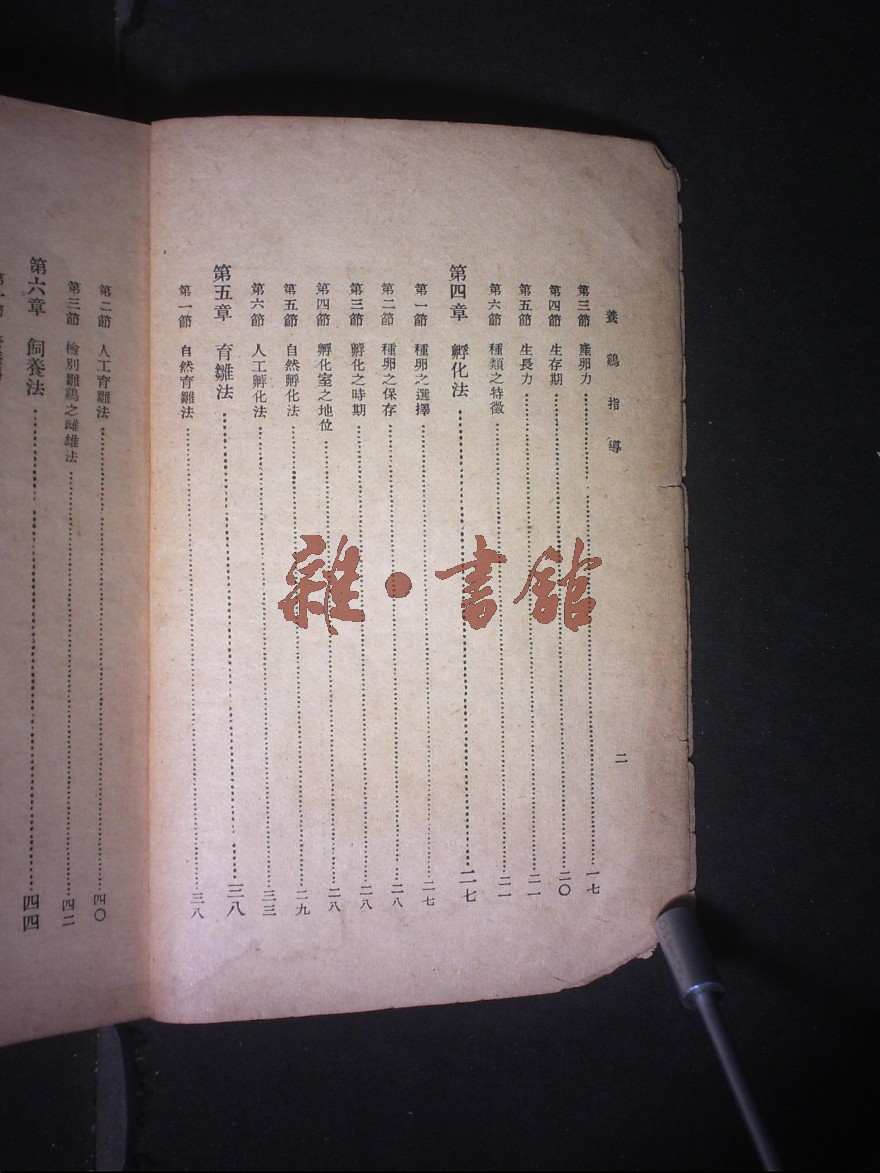 養鷄指導
二
第三節 產卵力 一七
第四節 生存期 二〇
第五節 生長力 二一
第六節 種類之特徵 二一
第四章 孵化法 二七
第一節 種卵之選擇 二七
第二節 種卵之保存 二八
第三節 孵化之時期 二八
第四節 孵化室之地位 二八
第五節 自然孵化法 二九
第六節 人工孵化法 三三
第五章 育雛法 三八
第一節 自然育雛法 三八
第二節 人工育雛法 四〇
第三節 檢別雛鷄之雌雄法 四二
第六章 飼養法 四四
雜·書館